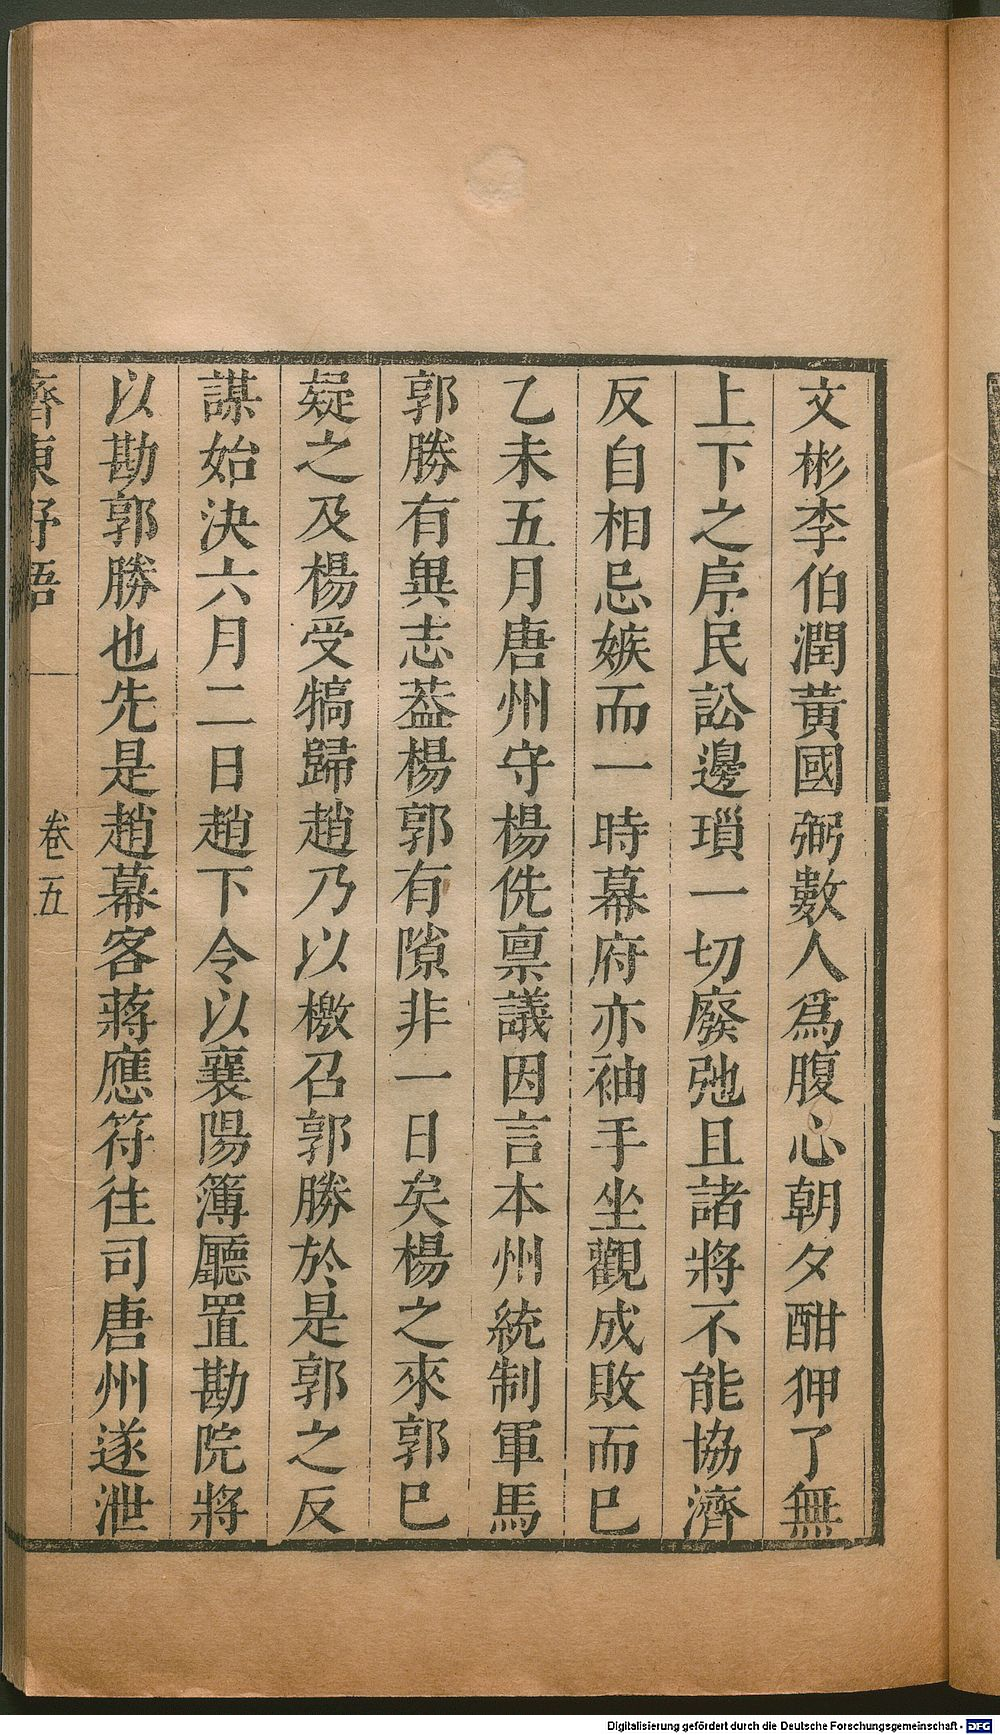 文彬李伯潤黃國弼數人爲腹心朝夕酣狎了無
上下之序民訟邊瑣一切廢弛且諸將不能協濟
反自相忌嫉而一時幕府亦袖手坐觀成敗而已
乙未五月唐州守楊侁禀議因言本州統制軍馬
郭勝有異志葢楊郭有隙非一日矣楊之來郭已
疑之及楊受犒歸趙乃以檄召郭勝於是郭之反
謀始決六月二日趙下令以襄陽簿廳置勘院將
以勘郭勝也先是趙幕客蔣應符往司唐州遂泄
齊東野語 卷五
Digitalisierung gefördert durch die Deutsche Forschungsgemeinschaft - DFG